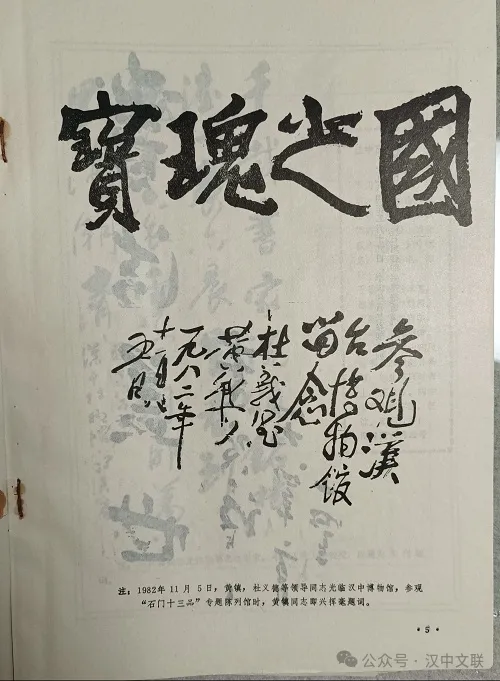 國之瑰寶
参观漢
台博物馆
留念
杜義德
黄鎮
一九八二年
十一月
五日
注：1982年11月5日，黄镇，杜义德等领导同志光临汉中博物馆，参观
“石门十三品”专题陈列馆时，黄镇同志即兴挥毫题词。
·5·
公众号·汉中文联